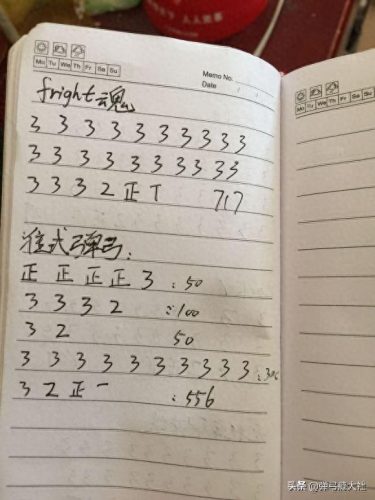 Mo Tu We Th Fr Sa Su
Memo No.
Date
fright魂
3 3 3 3 3 3 3 3 3 3
3 3 3 3 3 3 3 3 3 3
3 3 3 2 正 T 717
式弹弓:
正 正 正 正 3 :50
3 3 3 2 :100
3 2 50
3 3 3 3 3 3 3 3 3 3
3 2 正 一 :556
Mo Tu We Th
头条 @弹弓藏大社